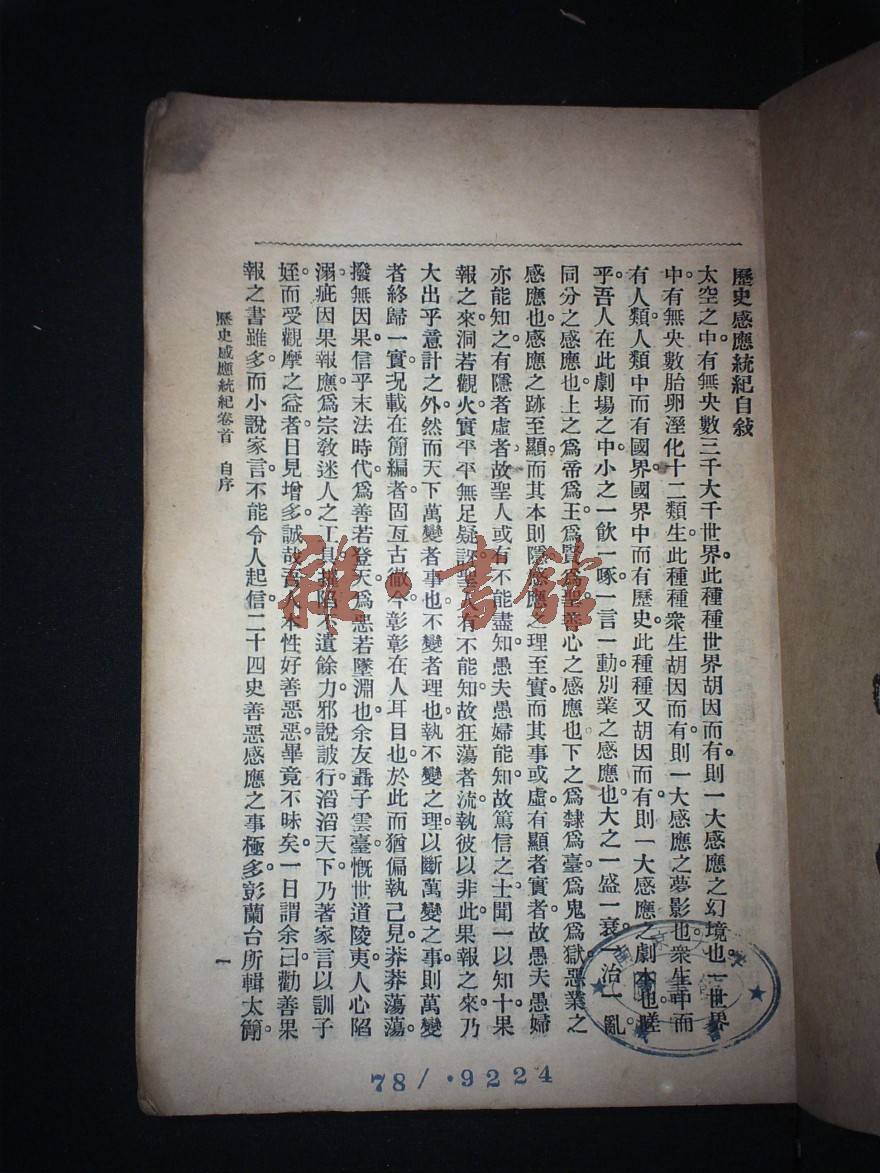 歷史感應統紀自敍
太空之中。有無央數三千大千世界。此種種世界。胡因而有。則一大感應之幻境也。一世界
中。有無央數胎卵溼化十二類生。此種種衆生。胡因而有。則一大感應之夢影也。衆生中而
有人類。人類中而有國界。國界中而有歷史。此種種又胡因而有。則一大感應之劇本也。嗟
乎。吾人在此劇場之中。小之一飲一啄。一言一動。別業之感應也。大之一盛一衰。一治一亂。
同分之感應也。上之爲帝爲王爲賢爲聖。善心之感應也。下之爲隸爲臺爲鬼爲獄。惡業之
感應也。感應之跡至顯。而其本則隱。感應之理至實。而其事或虛。有顯者實者。故愚夫愚婦
亦能知之。有隱者虛者。故聖人或有不能盡知。愚夫愚婦能知。故篤信之士。聞一以知十。果
報之來。洞若觀火。實平平無足疑訝。聖人有不能知。故狂蕩者流。執彼以非此。果報之來。乃
大出乎意計之外。然而天下萬變者事也。不變者理也。執不變之理。以斷萬變之事。則萬變
者終歸一實。况載在簡編者。固亙古徹今。彰彰在人耳目也。於此而猶偏執己見。莽莽蕩蕩。
撥無因果。信乎末法時代。爲善若登天。爲惡若墜淵也。余友聶子雲臺。慨世道陵夷。人心陷
溺。疵因果報應。爲宗敎迷人之工具。摧陷不遺餘力。邪說詖行。滔滔天下。乃著家言以訓子
姪。而受觀摩之益者。日見增多。誠哉吾人本性好善惡惡。畢竟不昧矣。一日謂余曰。勸善果
報之書雖多。而小說家言。不能令人起信。二十四史善惡感應之事極多。彭蘭台所輯太簡。
歷史感應統紀卷首 自序
一
雜·書館
78/·9224